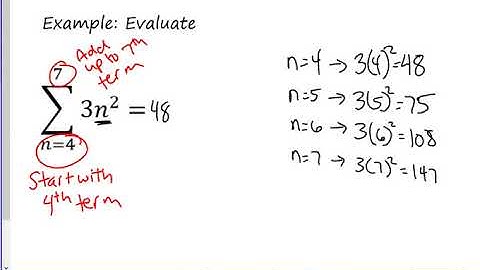 Example: Evaluate
Add
up to 7th
term
7
∑ 3n² = 48
n=4
Start with
4th term
n=4 → 3(4)²=48
n=5 → 3(5)²=75
n=6 → 3(6)²=108
n=7 → 3(7)²=147